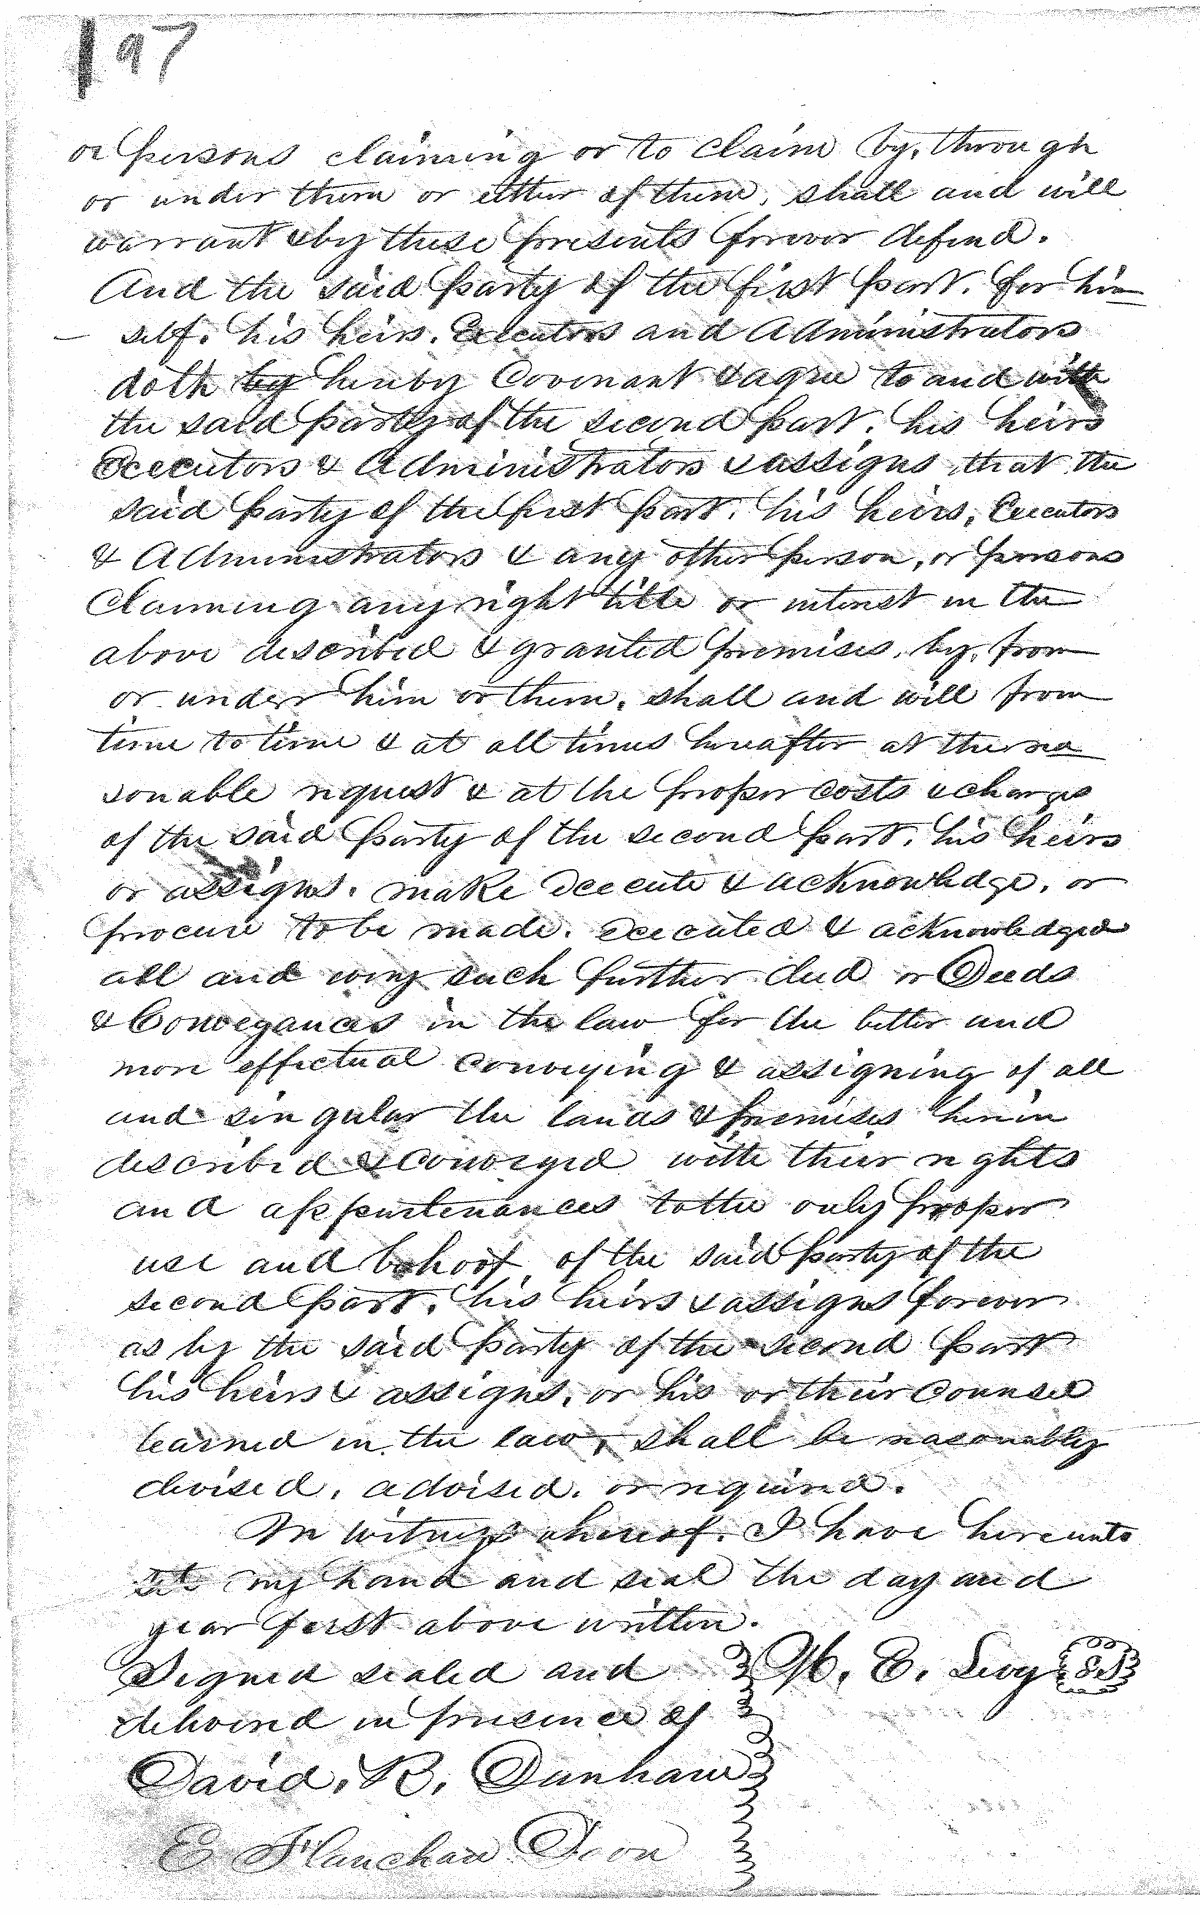 197
or persons claiming or to claim by, through
or under them or either of them, shall and will
warrant & by these presents forever defend.
And the said party of the first part, for him
– self, his heirs, Executors and Administrators
doth by hereby Covenant & agree to and with
the said party of the second part, his heirs
Executors & Administrators & assigns, that the
said party of the first part, his heirs, Executors
& Administrators & any other person, or persons
Claiming any right title or interest in the
above described & granted premises, by, from
or under him or them, shall and will from
time to time & at all times hereafter at the rea
sonable request & at the proper costs & charges
of the said party of the second part, his heirs
or assigns, make execute & acknowledge, or
procure to be made, executed & acknowledged
all and every such further deed or Deeds
& Conveyances in the law for the better and
more effectual conveying & assigning of all
and singular the lands & premises herein
described & conveyed with their rights
and appurtenances to the only proper
use and behoof of the said party of the
second part, his heirs & assigns forever
as by the said party of the second part
his heirs & assigns, or his or their counsel
learned in the law, shall be reasonably
devised, advised, or required.
In witness whereof, I have hereunto
set my hand and seal the day and
year first above written.
Signed sealed and
delivered in presence of
M. E. Levy
David, R, Dunham
E